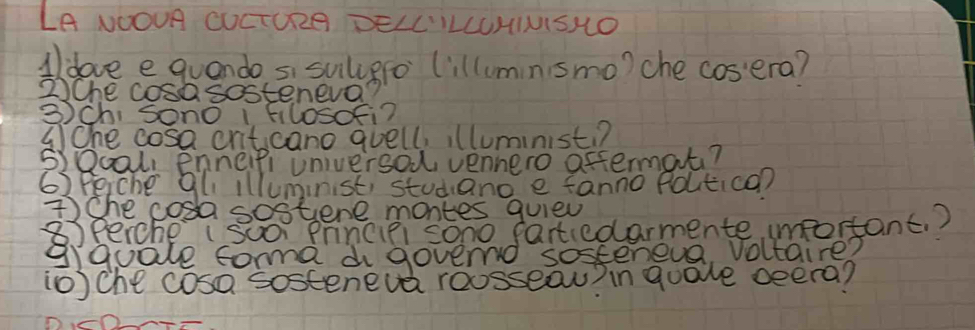 LA NUOVA CULTURA DELL'ILLUMINISMO
1) dove e quando si sviluppò l'illuminismo? che cos'era?
2) che cosa sosteneva?
3) chi sono i filosofi?
4) che cosa criticano quelli illuministi?
5) Quali principi universali vennero affermati?
6) Perche gli illuministi studiano e fanno Politica?
7) che cosa sostiene montes quieu
8) Perche i suoi principi sono particolarmente importanti?
9) quale forma di governo sosteneva Voltaire?
10) che cosa sosteneva rousseau? in quale opera?